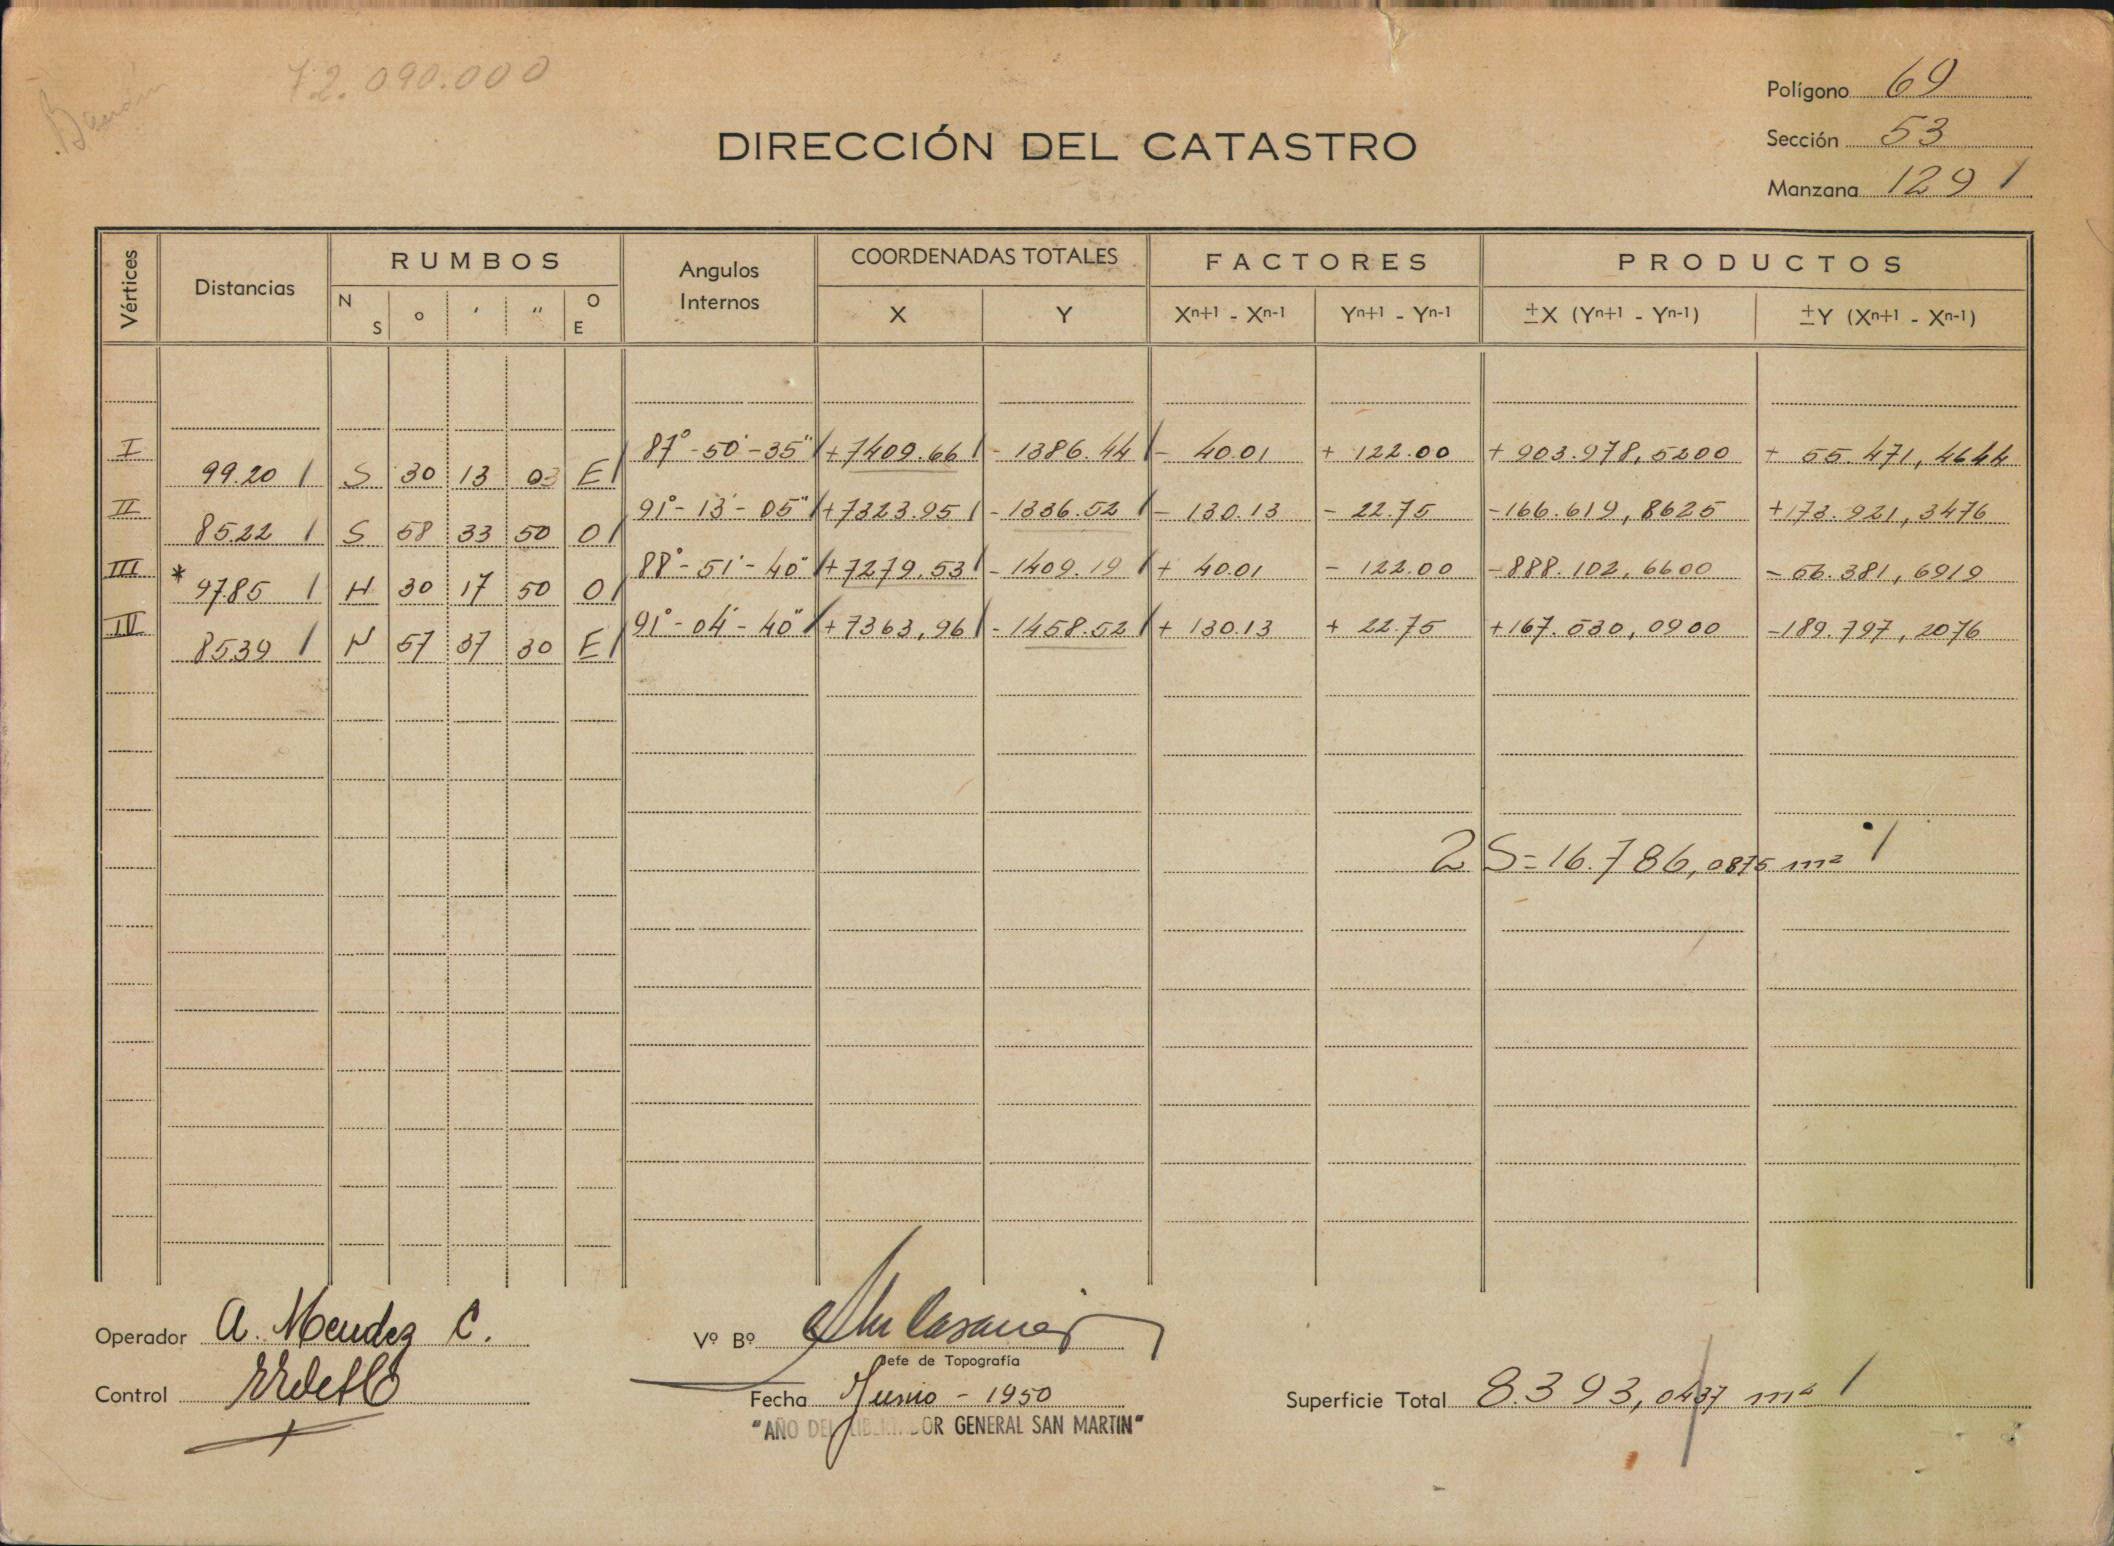 72.090.000
Polígono 69
DIRECCIÓN DEL CATASTRO
Sección 53
Manzana 129 /
Vértices Distancias RUMBOS Angulos Internos COORDENADAS TOTALES FACTORES PRODUCTOS
N S o ' " O E X Y Xn+1 - Xn-1 Yn+1 - Yn-1 ±X (Yn+1 - Yn-1) ±Y (Xn+1 - Xn-1)
I 87° - 50' - 35" / + 7409.66 / - 1386.44 / - 40.01 + 122.00 + 903.978,5200 + 55.471,4644
99.20 / S 30 13 03 E /
II 91° - 13' - 05" / + 7323.95 / - 1336.52 / - 130.13 - 22.75 - 166.619,8625 + 173.921,3476
85.22 / S 58 33 50 O /
III 88° - 51' - 40" / + 7279.53 / - 1409.19 / + 40.01 - 122.00 - 888.102,6600 - 56.381,6919
* 97.85 / N 30 17 50 O /
IV 91° - 04' - 40" / + 7363,96 / - 1458.52 / + 130.13 + 22.75 + 167.530,0900 - 189.797,2076
85.39 / N 57 37 30 E /
2 S = 16.786,0875 m² /
Operador A. Mendez C.
Vº Bº
Jefe de Topografía
Control
Fecha Junio - 1950
Superficie Total 8.393,0437 m² /
"AÑO DEL LIBERTADOR GENERAL SAN MARTIN"